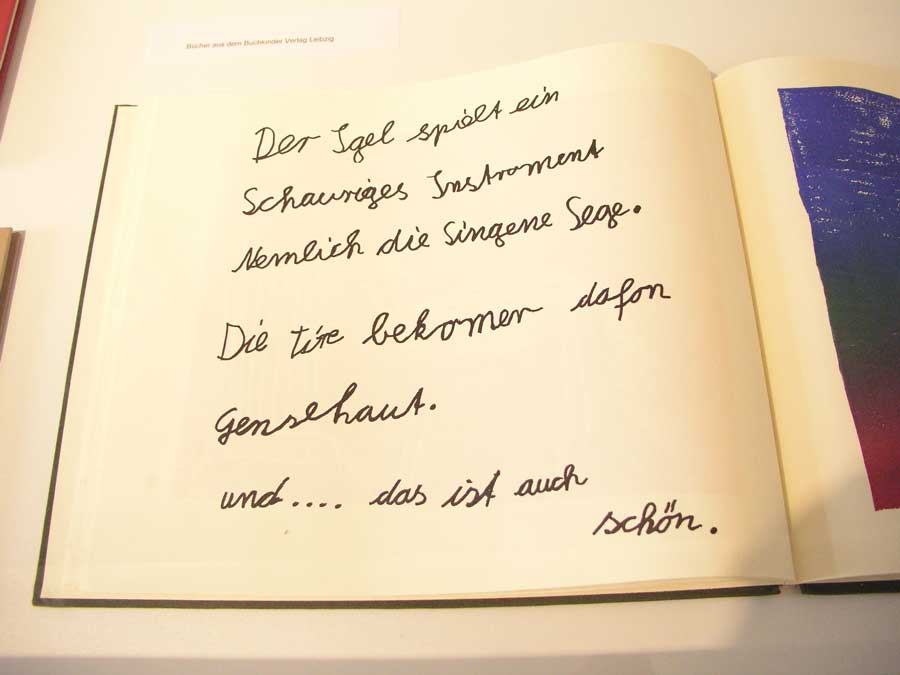 Bücher aus dem Buchkinder Verlag Leibzig
Der Igel spielt ein
Schauriges Instroment
Nemlich die Singene Sege.
Die tire bekomen dafon
gensehaut.
und.... das ist auch
schön.